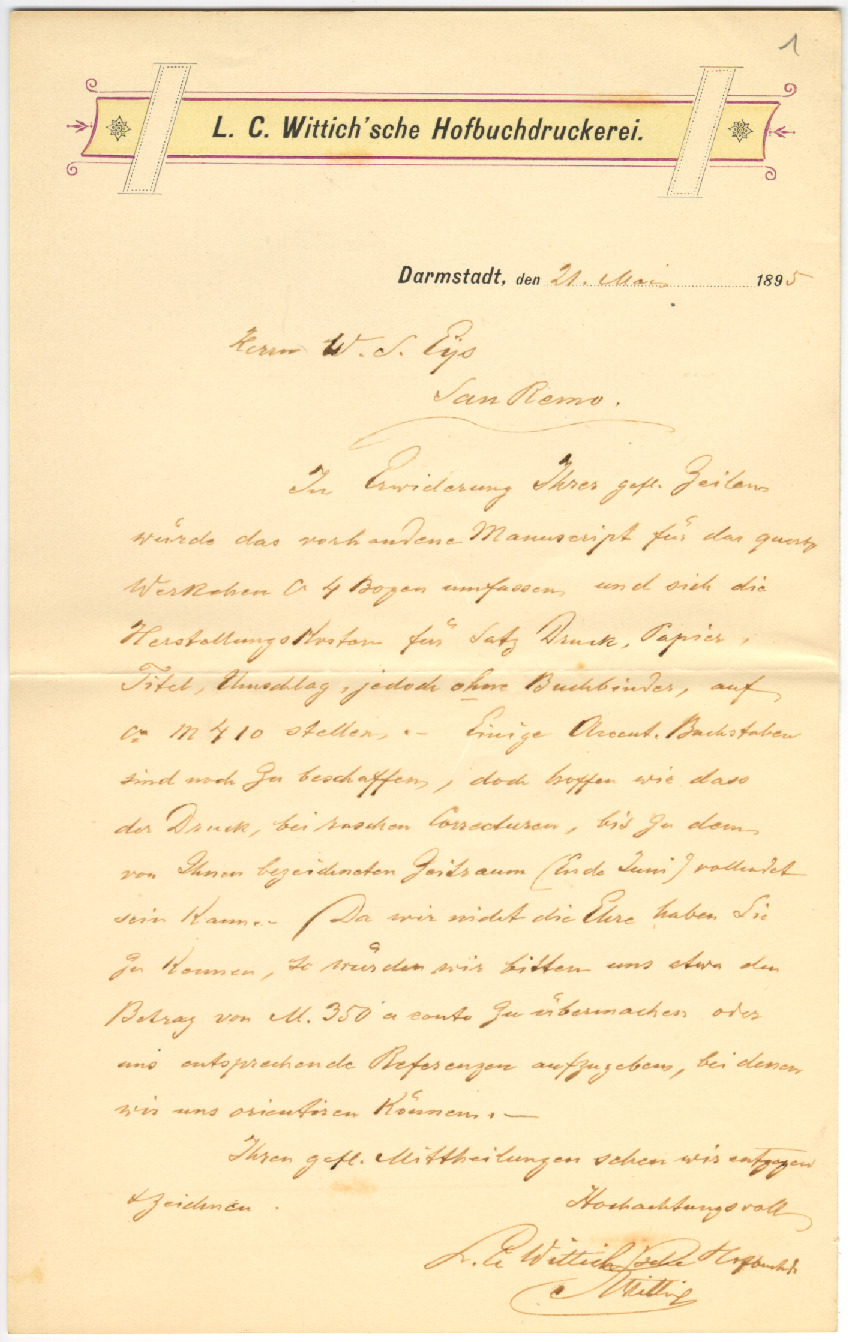 1
L. C. Wittich'sche Hofbuchdruckerei.
Darmstadt, den 21. Mai 1895
Herrn W. S. Eys
San Remo.
In Erwiderung Ihrer gefl. Zeilen
würde das vorhandene Manuscript für das
Werkchen 4 Bogen umfassen und sich die
Herstellungskosten für Satz Druck, Papier,
Titel, Umschlag, jedoch ohne Buchbinder, auf
M 410 stellen. – Einige Accent. Buchstaben
sind noch zu beschaffen, doch hoffen wir dass
der Druck, bei raschen Correcturen, bis zu dem
von Ihnen bezeichneten Zeitraum (Ende Juni) vollendet
sein kann. – Da wir nicht die Ehre haben Sie
zu kennen, so würden wir bitten uns etwa den
Betrag von M. 350 a conto zu übermachen oder
uns entsprechende Referenzen aufzugeben, bei denen
wir uns orientiren können. –
Ihren gefl. Mittheilungen sehen wir entgegen
& zeichnen.
Hochachtungsvoll
L. C. Wittich'sche Hofbuchdr.